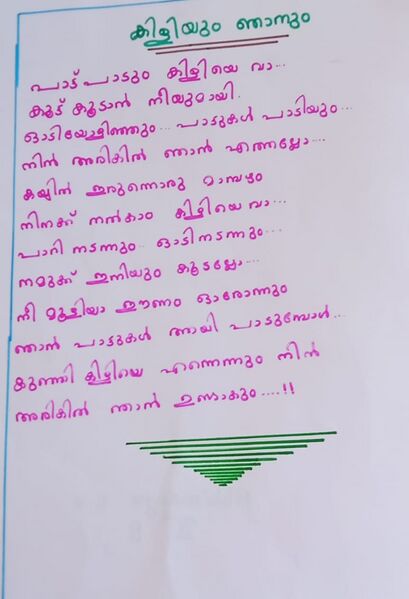 കിളിയും ഞാനും
പാട്ട് പാടും കിളിയെ വാ...
കൂട്ട് കൂടാൻ നീയുമായി.
ഓടിയോളിഞ്ഞും... പാട്ടുകൾ പാടിയും...
നിൻ അരികിൽ ഞാൻ എത്തല്ലോ....
കയ്യിൽ ഇരുന്നൊരു മാമ്പഴം
നിനക്ക് നൽകാം കിളിയെ വാ...
പാറി നടന്നും.. ഓടിനടന്നും...
നമുക്ക് ഇനിയും കൂടല്ലോ...
നീ മൂളിയാ ഈണം ഓരോന്നും
ഞാൻ പാട്ടുകൾ ആയി പാടുമ്പോൾ...
കുഞ്ഞി കിളിയെ എന്നെന്നും നിൻ
അരികിൽ ഞാൻ ഉണ്ടാകും....!!